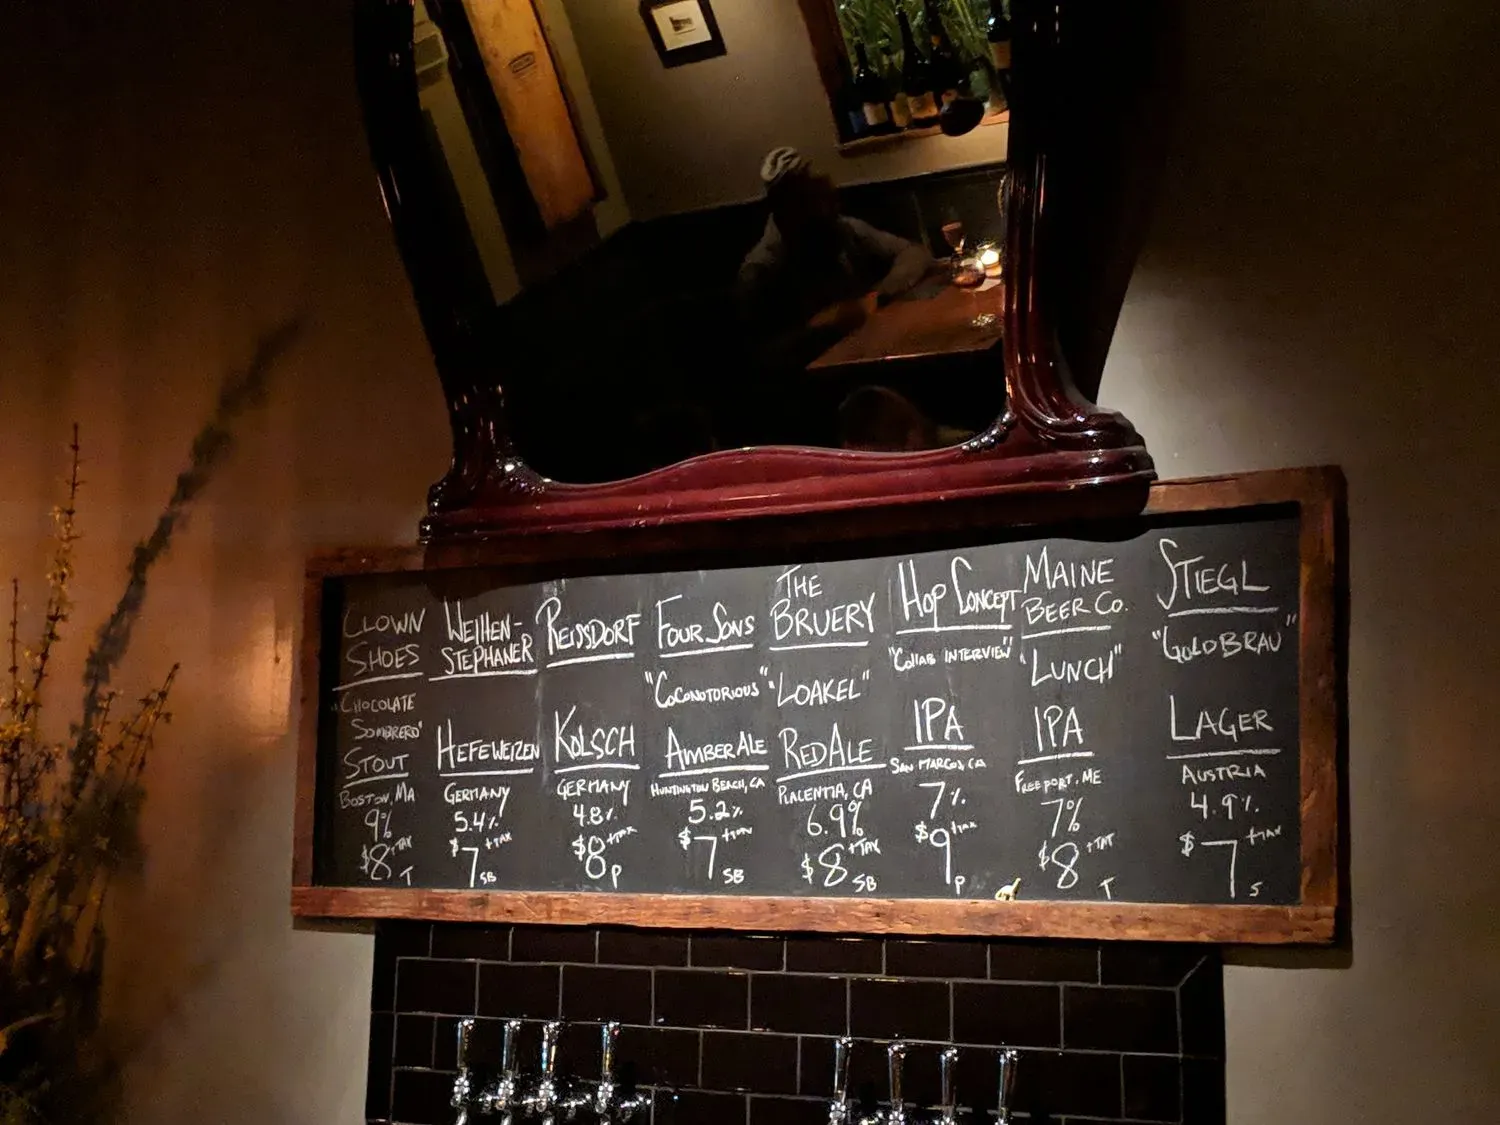 CLOWN
SHOES
"CHOCOLATE
SOMBRERO"
STOUT
BOSTON, MA
9%
$8 +TAX
T
WEIHEN-
STEPHANER
HEFEWEIZEN
GERMANY
5.4%
$7 +TAX
SB
REISSDORF
KOLSCH
GERMANY
4.8%
$8 +TAX
P
FOUR SONS
"COCONOTORIOUS"
AMBER ALE
HUNTINGTON BEACH, CA
5.2%
$7 +TAX
SB
THE
BRUERY
"LOAKEL"
RED ALE
PLACENTIA, CA
6.9%
$8 +TAX
SB
HOP CONCEPT
"COLLAB INTERVIEW"
IPA
SAN MARCOS, CA
7%
$9 +TAX
P
MAINE
BEER CO.
"LUNCH"
IPA
FREEPORT, ME
7%
$8 +TAX
T
STIEGL
"GOLDBRAU"
LAGER
AUSTRIA
4.9%
$7 +TAX
S